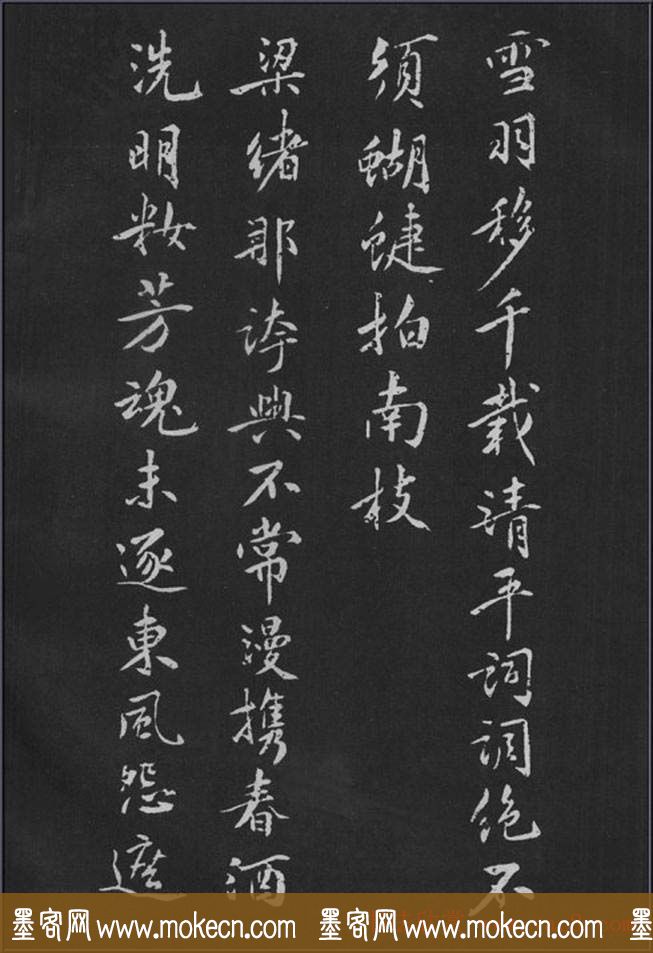 雪羽移千載清平詞調絶不
須蝴蝶拍南枝
梁緒那誇興不常漫携春酒
洗明籹芳魂未逐東風怨遮
墨客网 www.mokecn.com 墨客网 www.mokecn.com